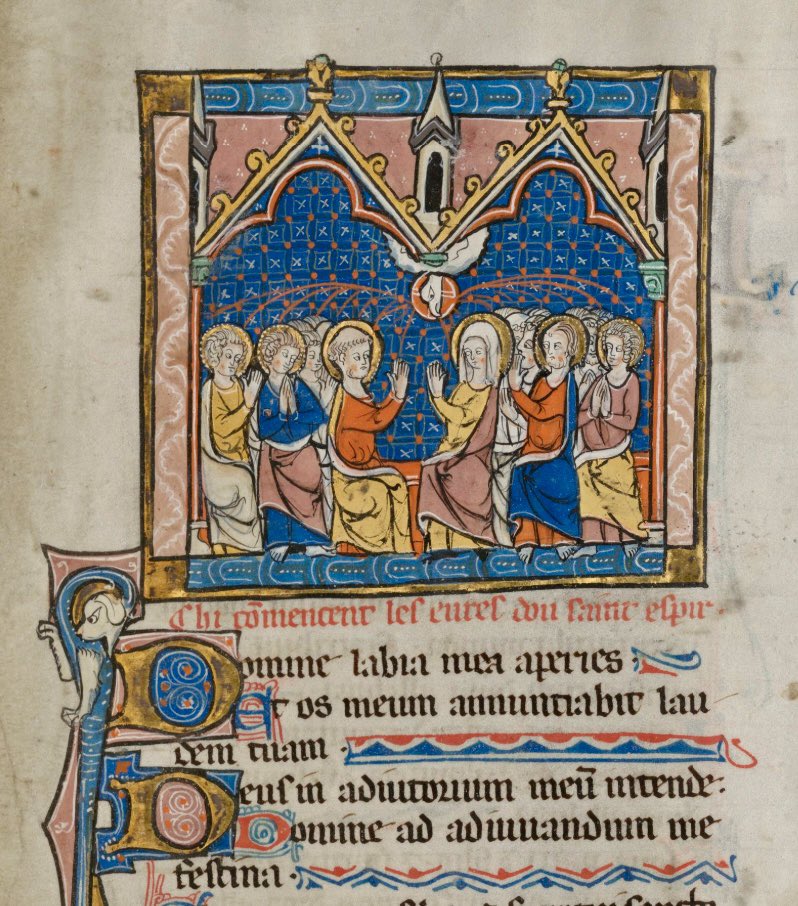 Chi cōmencent les eures dou saint espir.
Domine labia mea aperies:
Et os meum annuntiabit lau
dem tuam.
Deus in adiutorium meū intende:
Domine ad adiuuandum me
festina.